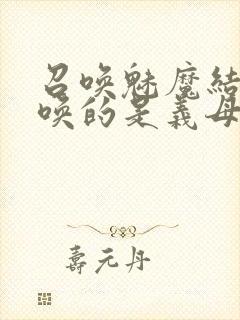 召唤魅魔结
唤的是義母
壽元丹